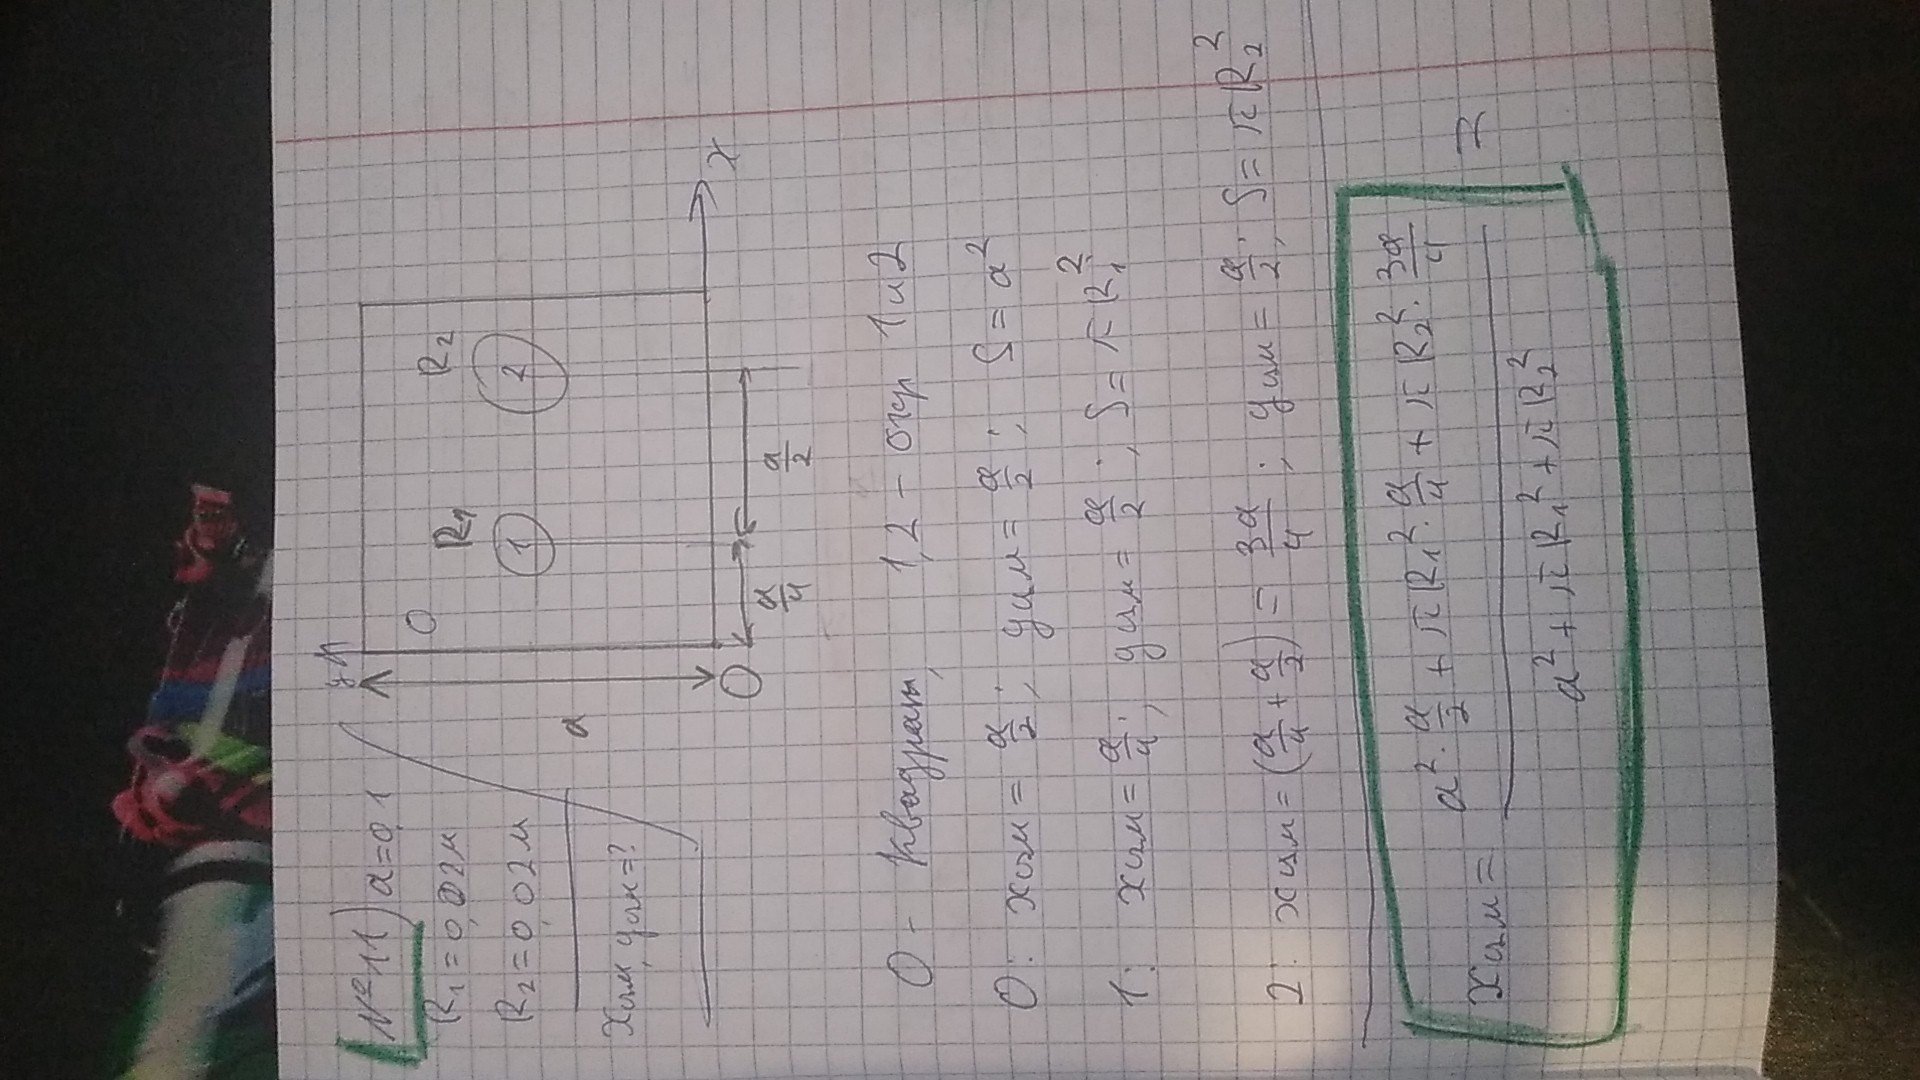 №11) a=0,1
R₁=0,02м
R₂=0,02м
Xцм, yцм=?
y
O
R₁
R₂
1
2
a
O
x
a/4
a/2
O - Квадрат, 1,2 - отр 1 и 2
O: xцм = a/2; yцм = a/2; S = a²
1: xцм = a/4; yцм = a/2; S = πR₁²
2: xцм = (a/4 + a/2) = 3a/4; yцм = a/2; S = πR₂²
xцм = (a² · a/2 + πR₁² · a/4 + πR₂² · 3a/4) / (a² + πR₁² + πR₂²) =